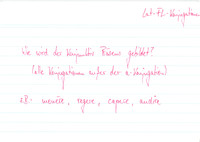 Lat-FL-Konjugation
Wie wird der Konjunktiv Präsens gebildet?
(alle Konjugationen außer der a-Konjugation)
z.B. monēre, regere, capere, audīre